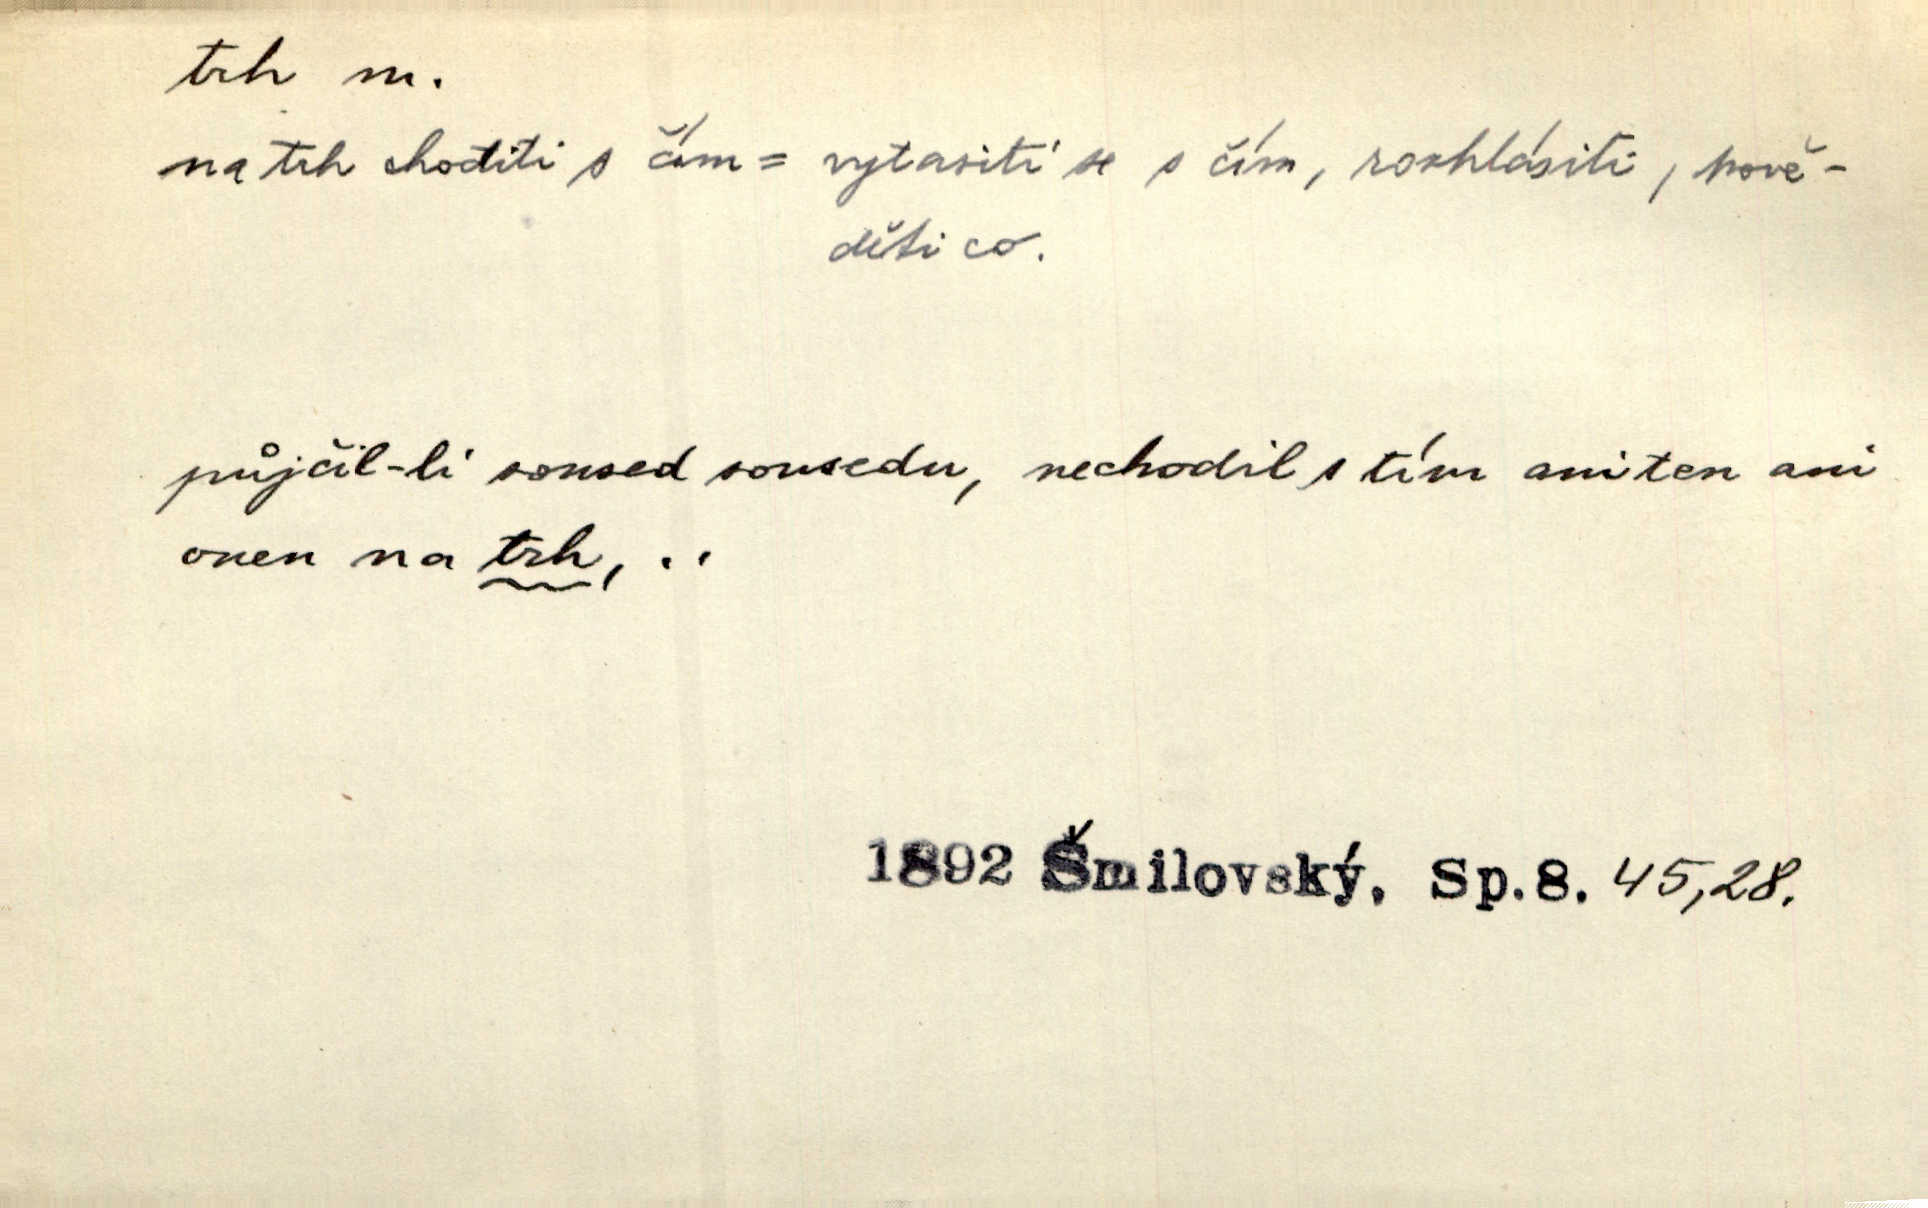 trh m.
na trh choditi s čím = vytasiti se s čím, rozhlásiti, pově-
děti co.
půjčil-li soused sousedu, nechodil s tím ani ten ani
onen na trh, . .
1892 Šmilovský, Sp.8. 45,28.